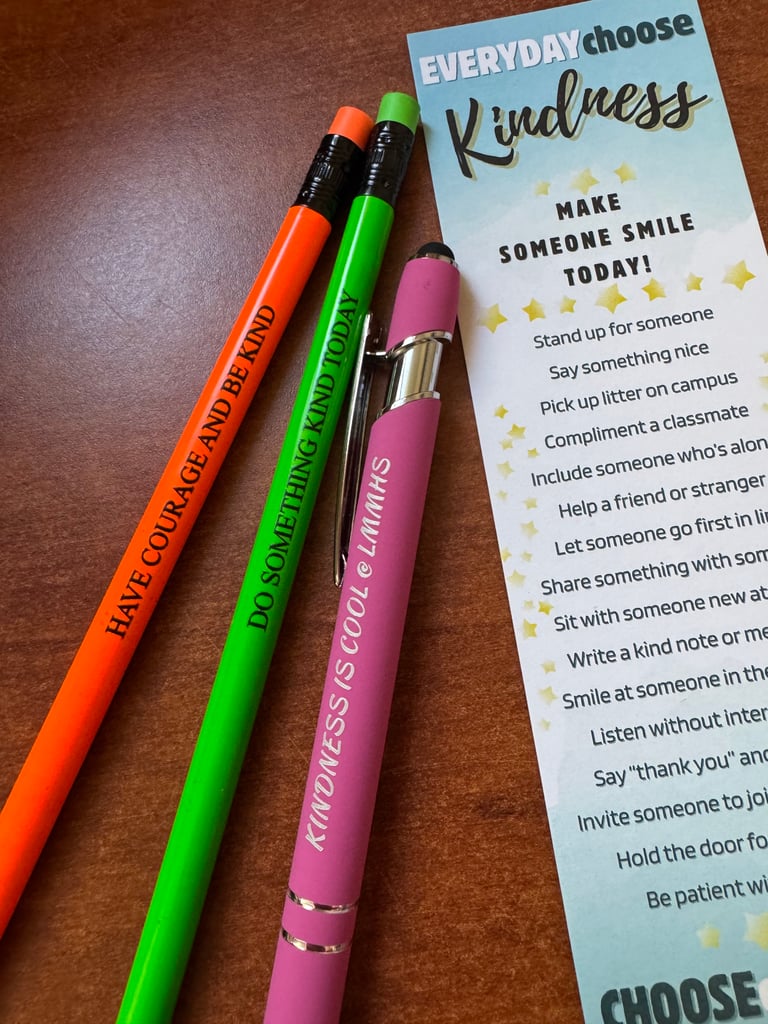 HAVE COURAGE AND BE KIND
DO SOMETHING KIND TODAY
KINDNESS IS COOL @ LMMHS
EVERYDAY choose
Kindness
MAKE
SOMEONE SMILE
TODAY!
Stand up for someone
Say something nice
Pick up litter on campus
Compliment a classmate
Include someone who's
Help a friend or stranger
Let someone go first in
Share something with
Sit with someone new at
Write a kind note or
Smile at someone in
Listen without
Say "thank you"
Invite someone to
Hold the door
Be patient
CHOOSE